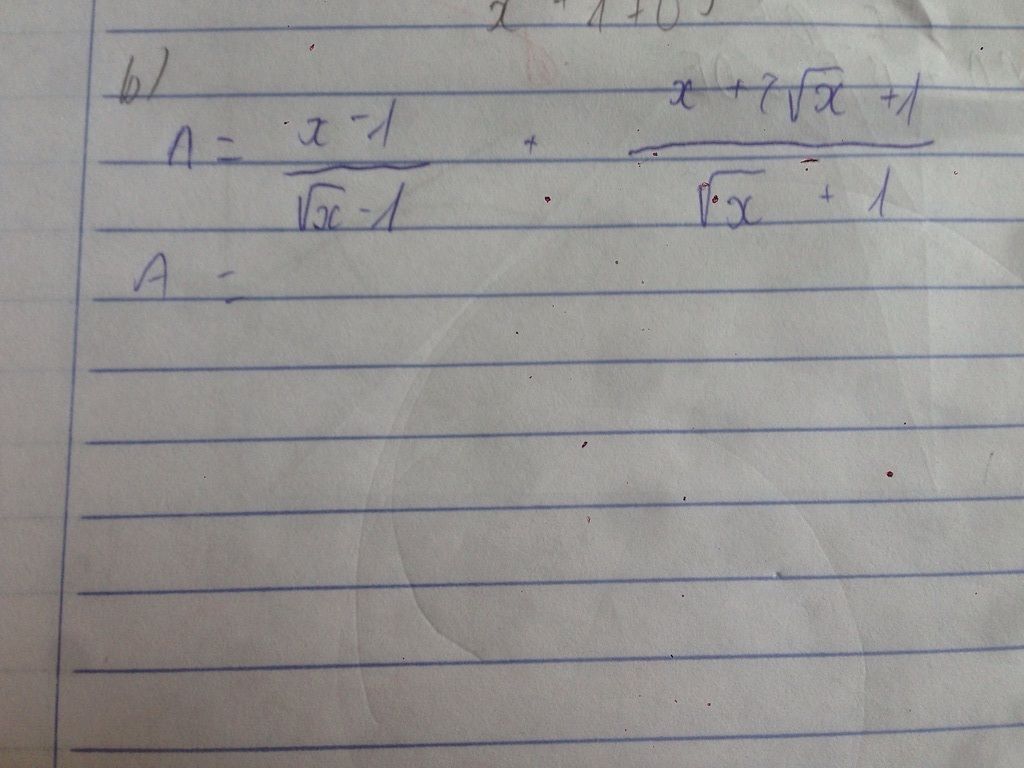 x + 1 ≠ 0
b)
A = \frac{x - 1}{\sqrt{x} - 1} + \frac{x + 2\sqrt{x} + 1}{\sqrt{x} + 1}
A =